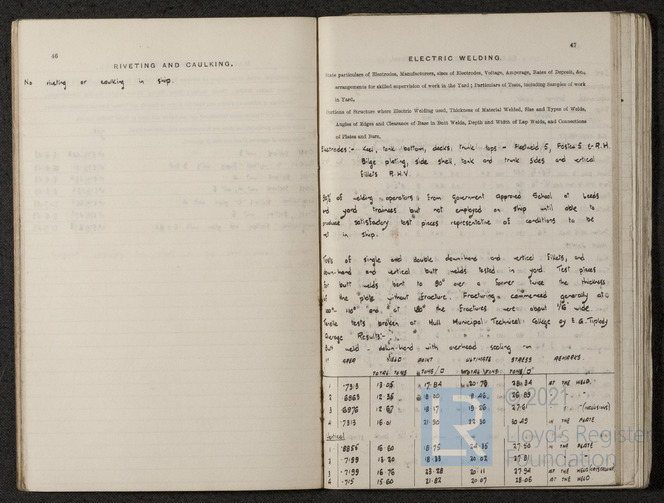 46
RIVETING AND CAULKING.
No riveting or caulking in ship.
47
ELECTRIC WELDING.
State particulars of Electrodes, Manufacturers, sizes of Electrodes, Voltage, Amperage, Rates of Deposit, &c.,
arrangements for skilled supervision of work in the Yard; Particulars of Tests, including Samples of work
in Yard,
Portions of Structure where Electric Welding used, Thickness of Material Welded, Size and Types of Welds,
Angles of Edges and Clearance of Base in Butt Welds, Depth and Width of Lap Welds, and Connections
of Plates and Bars,
Electrodes:- Keel, tank bottom, decks, trunk tops -
Bilge plating, side shell, tank and trunk sides and vertical
fillets R.H.V.
of welding operators from Government Approved School at Leeds
yard trainees but not employed on ship until able to
produce satisfactory test pieces representative of conditions to be
met in ship.
Tests of single and double down-hand and vertical fillets, and
down-hand and vertical butt welds tested in yard Test pieces
for butt welds bent to 80° over a former twice the thickness
of the plate without fracture. Fracturing commenced generally at
110° and at 180° the fractures were about 1/16 wide
Tensile tests broken at Hull Municipal Technical College by E.G.
Average Results:-
Butt weld - down-hand with overhead sealing run
AREA YIELD POINT ULTIMATE STRESS REMARKS.
TOTAL TONS TONS/□" TOTAL TONS TONS/□"
1 .7313 13.05 17.84 20.73 28.34 AT THE WELD.
2 .6863 12.35 26.89 "
3 .6976 12.67 18.17 19.26 27.61 "
4 .7313 16.01 21.90 22.30 30.49 IN THE PLATE
Vertical
1 .8855 16.60 18.75 24.35 27.50 IN THE PLATE
2 .7199 13.20 18.33 20.02 27.81 "
3 .7199 16.76 23.28 20.11 27.94 AT THE WELD
4 .715 15.60 21.82 20.07 28.06 AT THE WELD
LR
© 2021
Lloyd's Register
Foundation